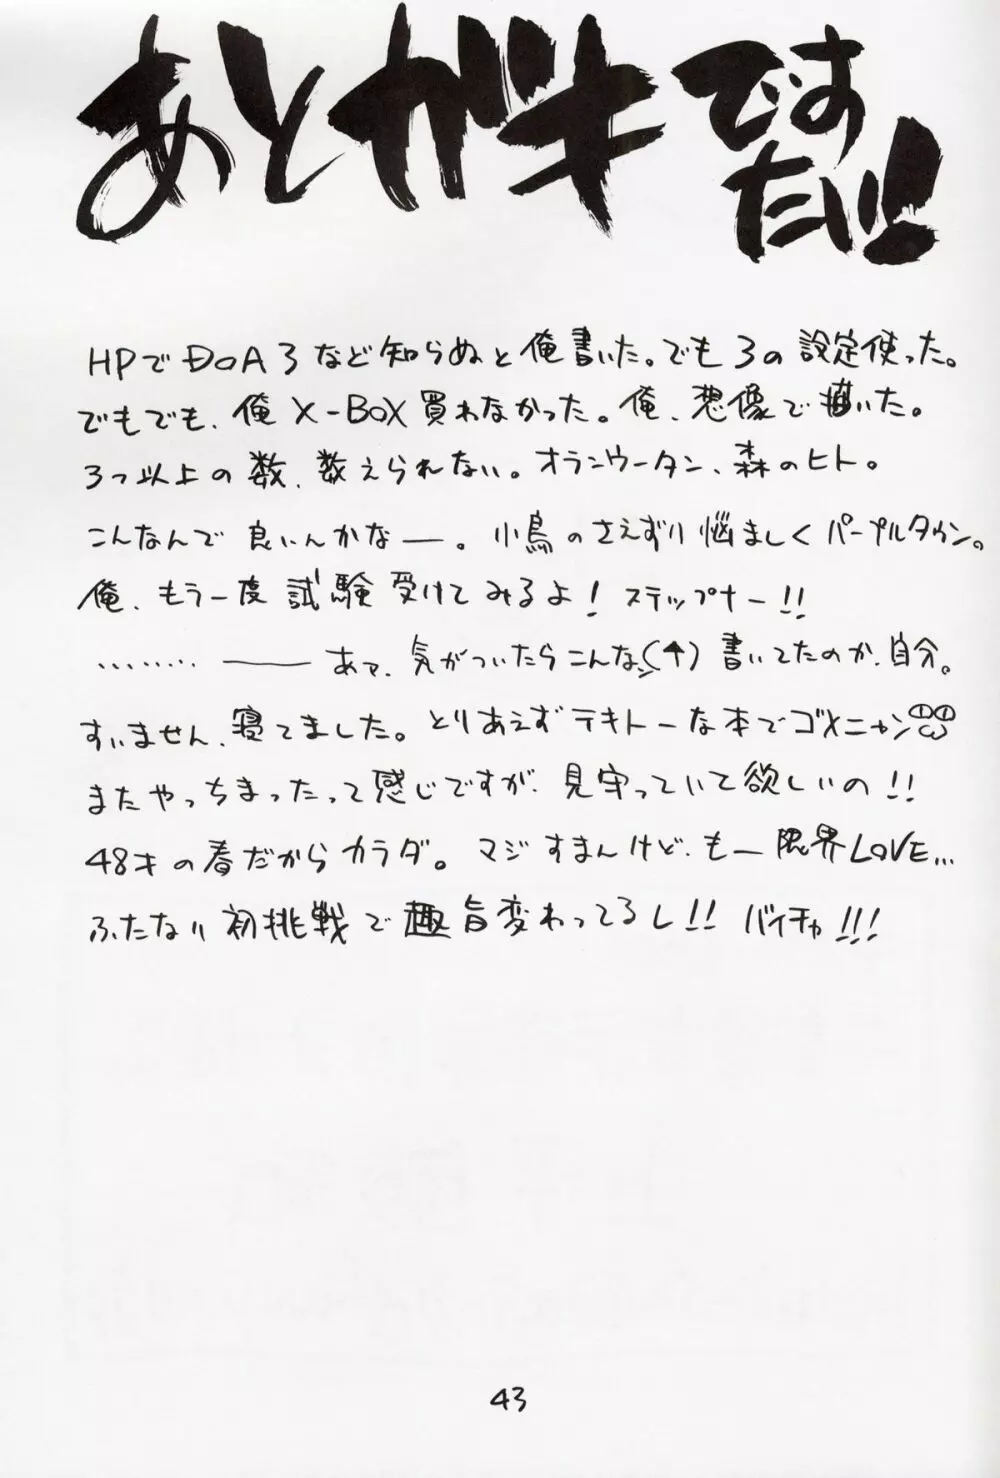 あとガキですたい!!
HPでDOA3など知らぬと俺書いた。でも3の設定使った。
でもでも、俺X-BOX買わなかった。俺、想像で描いた。
3つ以上の数、数えられない。オランウータン、森のヒト。
こんなんで良いんかなー。小鳥のさえずり悩ましくパープルタウン。
俺、もう一度試験受けてみるよ!ステップナー!!
……… ――― あァ、気がついたらこんな(↑)書いてたのか、自分。
すいません、寝てました。とりあえずテキトーな本でゴメニャン
またやっちまったって感じですが、見守っていて欲しいの!!
48才の春だからカラダ。マジすまんけど、もー限界LOVE…
ふたなり初挑戦で趣旨変わってるし!!バイチャ!!!
43